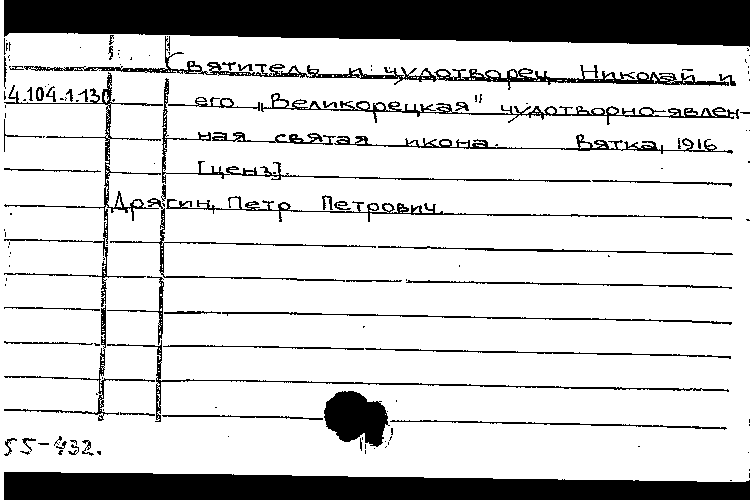 Святитель и чудотворец Николай и
4.104.1.130. его „Великорецкая" чудотворно-явлен-
ная святая икона. Вятка, 1916
[ценз].
Дрягин, Петр Петрович.
55-432.